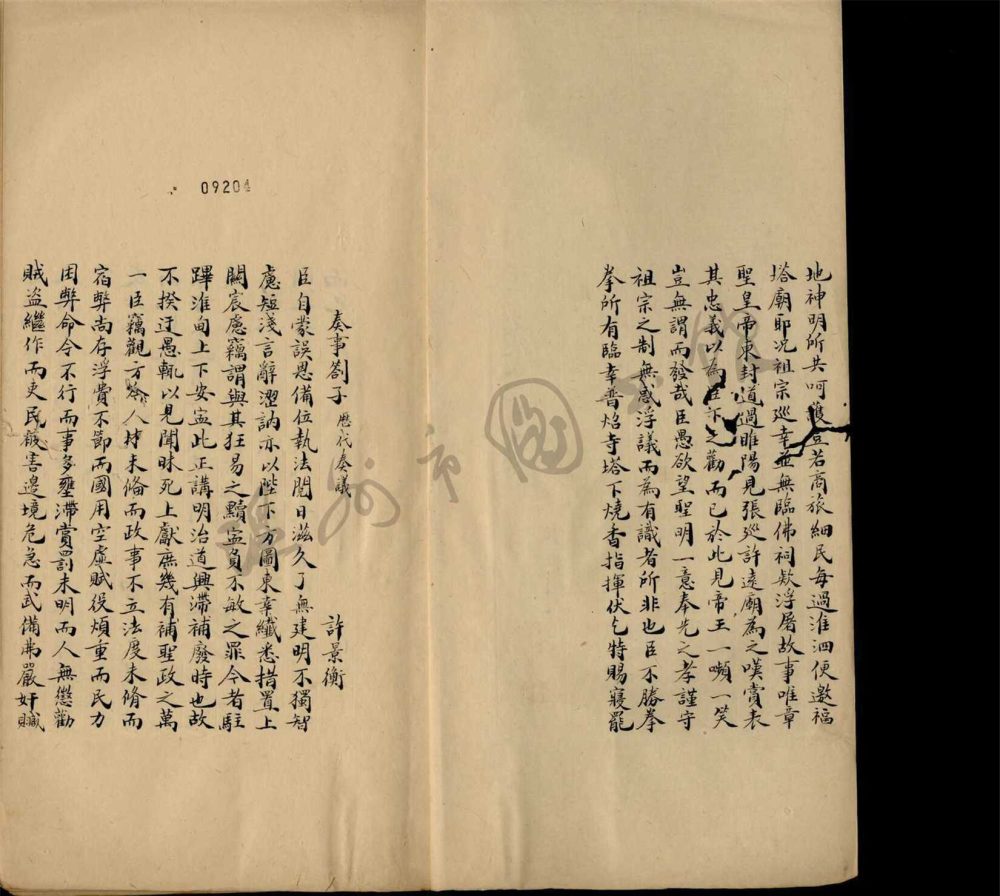 地神明所共呵護豈若商旅細民每過淮泗便邀福
塔廟耶況祖宗巡幸並無臨佛祠欵浮屠故事唯章
聖皇帝東封道過睢陽見張巡許遠廟為之嘆賞表
其忠義以為臣下之勸而已於此見帝王一嚬一笑
豈無謂而發哉臣愚欲望聖明一意奉先之孝謹守
祖宗之制無感浮議而為有識者所非也臣不勝拳
拳所有臨幸普炤寺塔下燒香指揮伏乞特賜寢罷
09204
奏事劄子 歷代奏議 許景衡
臣自蒙誤恩備位執法閱日滋久了無建明不獨智
慮短淺言辭澀訥亦以陛下方圖東幸纖悉措置上
關宸慮竊謂與其狂易之黷寍負不敏之罪今者駐
蹕淮甸上下安寍此正講明治道興滯補廢時也故
不揆迂愚輒以見聞昧死上獻庶幾有補聖政之萬
一臣竊觀方今人材未脩而政事不立法度未脩而
宿弊尚存浮費不節而國用空虛賦役煩重而民力
困弊命令不行而事多壅滯賞罰未明而人無懲勸
賊盜繼作而吏民被害邊境危急而武備弗嚴奸贓
溫州市圖書館